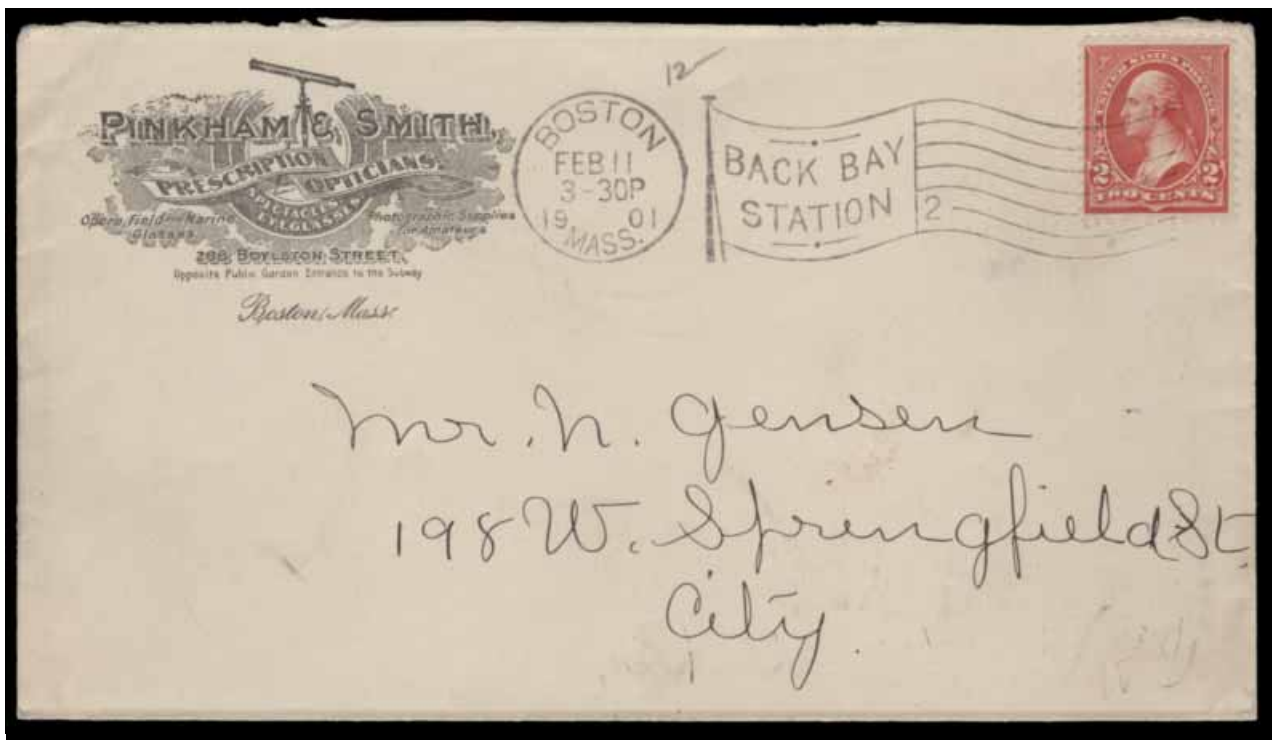 PINKHAM & SMITH,
PRESCRIPTION
OPTICIANS.
SPECTACLES &
EYEGLASSES
Opera, Field and Marine
Glasses
Photographic Supplies
for Amateurs
288 BOYLSTON STREET,
Opposite Public Garden Entrance to the Subway
Boston, Mass.
12
BOSTON
FEB 11
3-30P
19 01
MASS.
BACK BAY
STATION
2
UNITED STATES POSTAGE
2 2
TWO CENTS
Mr. N. Jensen
198 W. Springfield St
City.